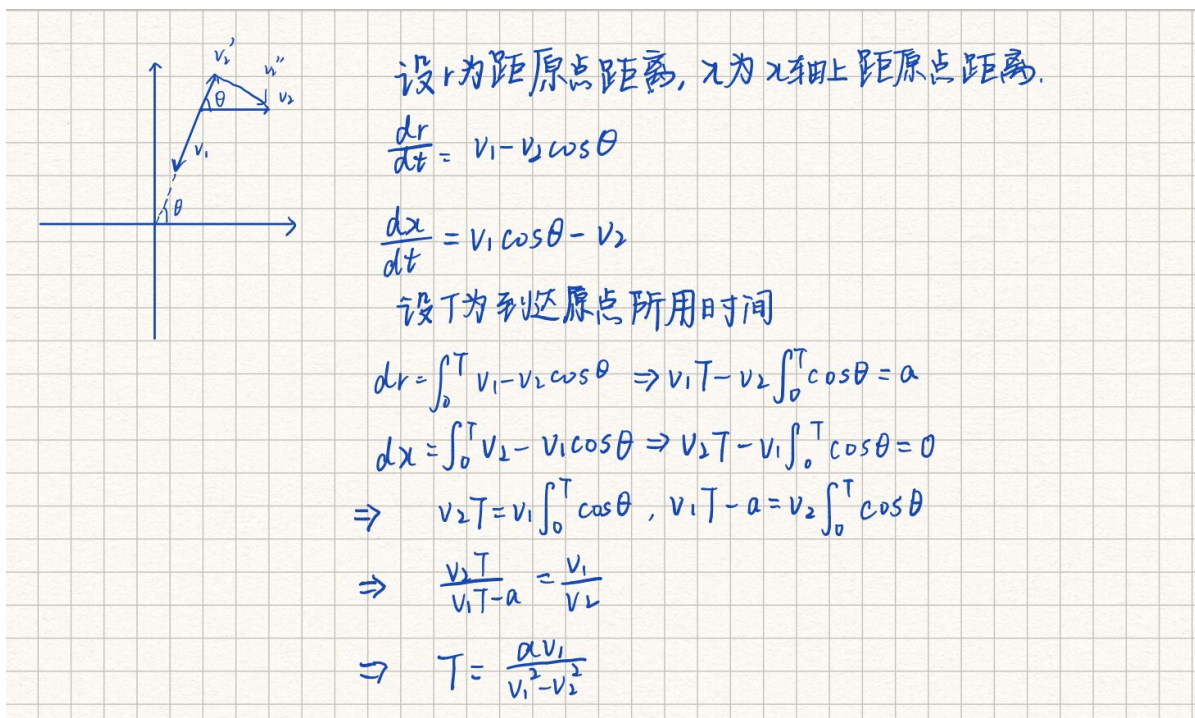 v₂' v₂'' v₂
θ
v₁
θ
设r为距原点距离, x为x轴上距原点距离.
dr/dt = v₁-v₂cosθ
dx/dt = v₁cosθ-v₂
设T为到达原点所用时间
dr=∫₀ᵀ v₁-v₂cosθ ⇒ v₁T-v₂∫₀ᵀcosθ=a
dx=∫₀ᵀ v₂-v₁cosθ ⇒ v₂T-v₁∫₀ᵀcosθ=0
⇒ v₂T=v₁∫₀ᵀcosθ, v₁T-a=v₂∫₀ᵀcosθ
⇒ v₂T/(v₁T-a) = v₁/v₂
⇒ T= av₁/(v₁²-v₂²)